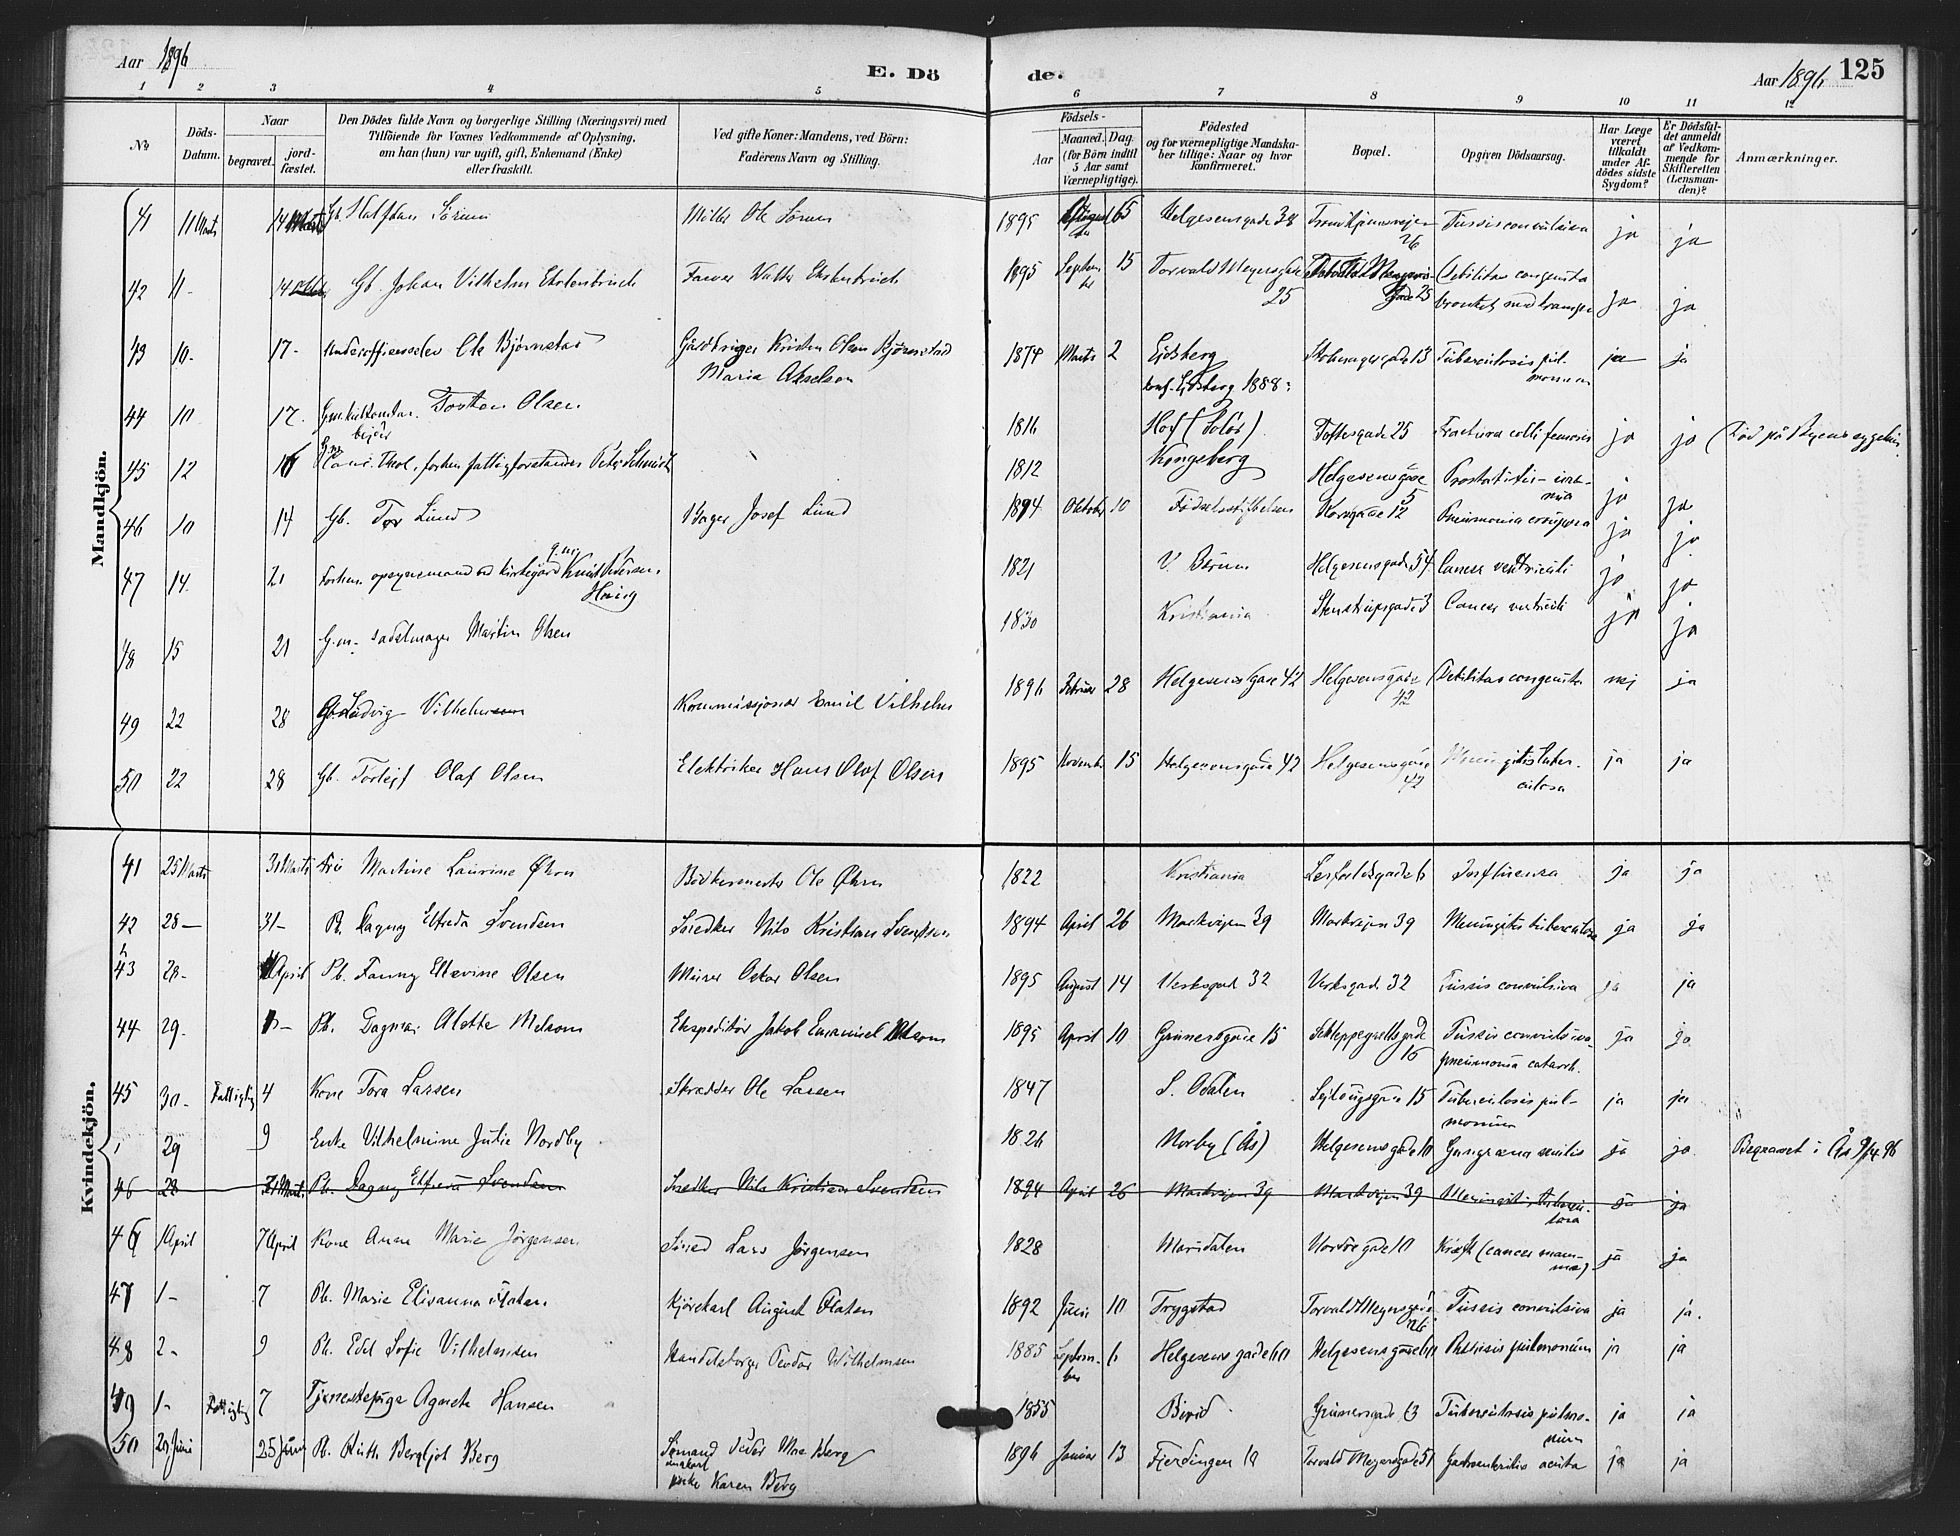 Aar 1896
E. Dö
de.
Aar 1896
125
1 2 3 4 5 6 7 8 9 10 11 12
No
Döds-Datum.
Naar
begravet.
jord-fæstet.
Den Dödes fulde Navn og borgerlige Stilling (Næringsvei) med
Tilföiende for Voxnes Vedkommende af Oplysning,
om han (hun) var ugift, gift, Enkemand (Enke)
eller fraskilt.
Ved gifte Koner: Mandens, ved Börn:
Faderens Navn og Stilling.
Födsels-
Aar
Maaned. Dag.
(for Börn indtil
5 Aar samt
Værnepligtige).
Födested
og for værnepligtige Mandska-
ber tillige: Naar og hvor
konfirmeret.
Bopæl.
Opgiven Dödsaarsag.
Har Læge
været
tilkaldt
under Af-
dödes sidste
Sygdom?
Er Dödsfal-
det anmeldt
af Vedkom-
mende for
Skifteretten
(Lensman-
den)?
Anmærkninger.
Mandkjön.
41 11 Marts 14 Marts Gb. Halfdan Sörum Möller Ole Sörum 1895 August 65 Helgesensgade 38 Trondhjemsvejen 26 Tussis convulsiva ja ja
42 11- 14 Gb. Johan Vilhelm Farver 1895 September 15 Torvald Meyersgade 25 Torvald Meyers Gade 25 Debilitas congenita ja ja
43 10- 17- Underofficerselev Ole Bjørnstad Gårdbruger Kristen Olsen Bjørnstad
Maria Akselson 1874 Marts 2 Eidsberg
konf. Eidsberg 1888 13 Tuberculosis pulmonum ja ja
44 10 17. Olsen 1816 Hof (Solör) Toftesgade 25 Fractura colli femoris ja ja Död på Byens sygehus
45 12 Cand. Theol., forhen. fattigforstander Peter Schmidt 1812 Kongsberg Helgesensgade 5 Prostatitis - uræmia ja ja
46 10 14 Gb. Tor Lund Bager Josef Lund 1894 Oktober 10 Födselsstiftelsen Korsgade 12 Pneumonia crouposa ja ja
47 14. 21 Forhen. opsynsmand ved kirkegård g.m. Knut 1821 V. Bærum Helgesensgade 54 Cancer ventriculi ja ja
48 15 21 G.m. sadelmager Martin Olsen 1830 Kristiania Stenstrupsgade 3 Cancer ventriculi ja ja
49 22 28 Gb. Ludvig Vilhelmsen Kommissjonær Emil Vilhelm 1896 Februar 28 Helgesens Gade 42 Helgesensgade 42 Debilitas congenita nej ja
50 22 28 Gb. Torleif Olaf Olsen Elektriker Hans Olaf Olsen 1895 November 15 Helgesensgade 42 Helgesensgade 42 Meningitis tuberculosa ja ja
Kvindekjön.
41 25 Marts 31 Marts Martine Laurine Øhrn Bödkermester Ole Øhrn 1822 Kristiania Influenza ja ja
42 28 — 31- Pb. Dagny Elfreda Svendsen Snedker Nils Kristian Svendsen 1894 April 26 Markvejen 39 Markvejen 39 Meningitis tuberculosa ja ja
43 28- April Pb. Fanny Olsen Murer Oskar Olsen 1895 August 14 Verksgade 32 Verksgade 32 Tussis convulsiva ja ja
44 29- Pb. Dagmar Alette Melsom Ekspeditör Jakob Emanuel Melsom 1895 April 10 Grünersgade 15 Schleppegrellsgade 16 Tussis convulsiva
pneumonia catarrh. ja ja
45 30- Fattigby 4 Kone Tora Larsen Skrædder Ole Larsen 1847 S. Odalen 15 Tuberculosis pulmonum ja ja
29 9 Enke Vilhelmine Julie Nordby 1826 Norby (Ås) Helgesensgade 10 Gangræna senilis ja ja Begravet i Ås 9/4 96
46 28 31 Marts Pb. Dagny Elfreda Svendsen Snedker Nils Kristian Svendsen 1894 April 26 Markvejen 39 Markvejen 39 Meningitis tuberculosa ja ja
46 1 April 7 April Kone Anna Marie Jörgensen Smed Lars Jörgensen 1828 Maridalen Nordregade 10 Kræft (cancer mammæ) ja ja
47 1- 7 Pb. Marie Elisanna Flaten Kjörekarl August Flaten 1892 Juni 10 Trygstad Torvald Meyersgade 26 Tussis convulsiva ja ja.
48 2- 9 Pb. Edel Sofie Vilhelmsen Handelsborger Teodor Wilhelmsen 1885 September 6 Helgesens gade 60 Helgesensgade 60 Phthisis pulmonum ja ja
49 1- Fattigby 7 Tjenestepige Agnete Hansen 1855 Biri Grünersgade 13 Tuberculosis pulmonum ja ja
50 20 Juni 25 Juni Pb. Ruth Bergljot Berg Sömand Berg
Karen Berg 1896 Januar 13 Fjerdingen 10 Torvald Meyersgade 51 Gastroenteritis acuta ja ja